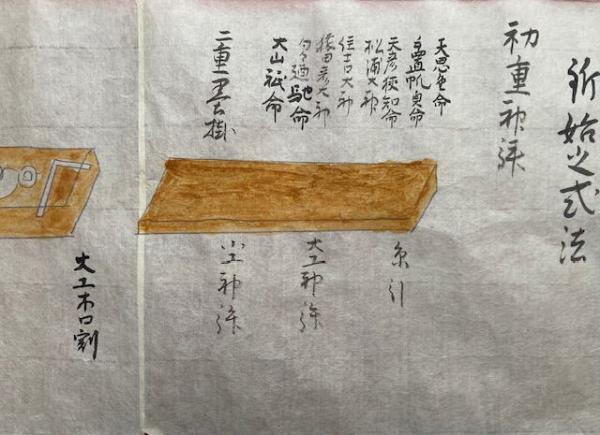 釿始之式法
初重神
天思兼命
手置帆負命
天彦狭知命
松浦大神
住吉大神
猿田彦大神
句々廼馳命
大山祇命
二重墨掛
糸引
大工神
小工神
大工木口割